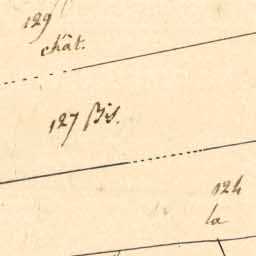 129
chât.
127 Bis.
124
la